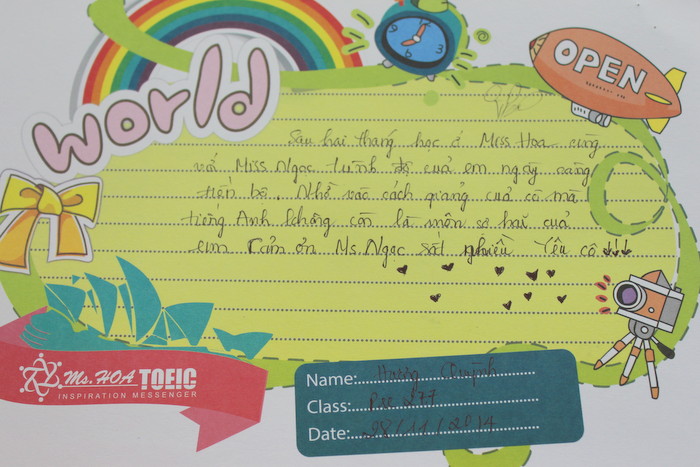 world
OPEN
Sau hai tháng học ở Miss Hoa cùng
với Miss Ngọc trình độ của em ngày càng
tiến bộ. Nhờ vào cách giảng của cô mà
tiếng Anh không còn là môn sợ hãi của
em Cảm ơn Ms. Ngọc rất nhiều Yêu cô
Ms. HOA TOEIC
INSPIRATION MESSENGER
Name: Hương Quỳnh
Class: Pre 277
Date: 28/11/2014